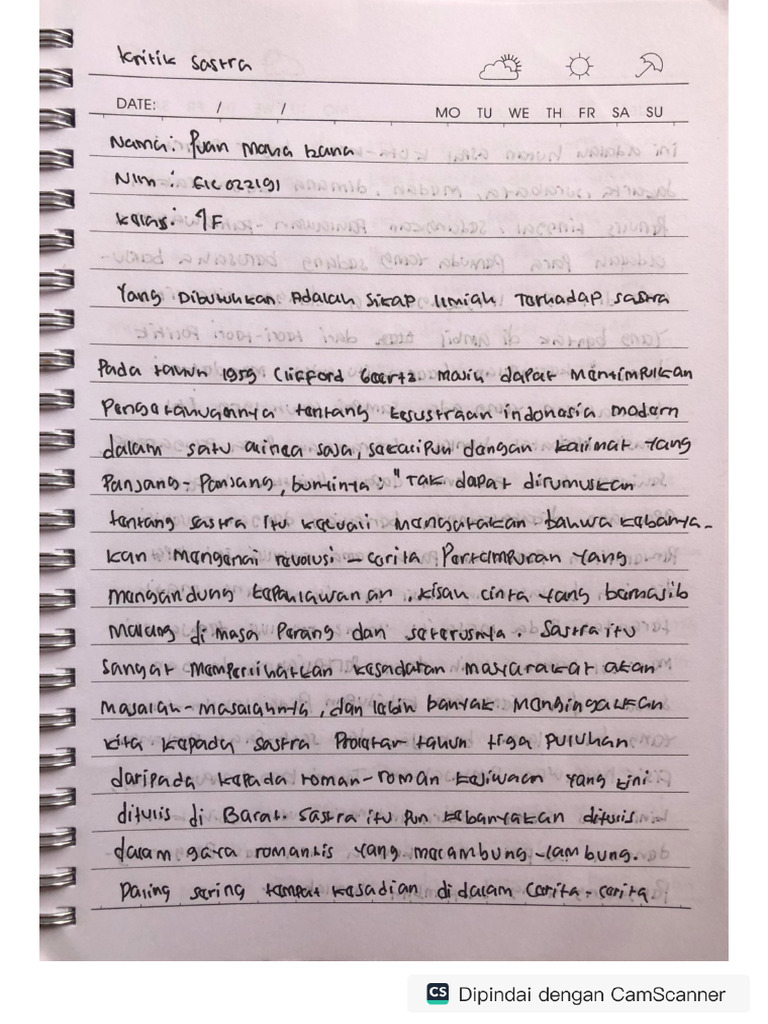 Kritik Sastra
DATE: / /
MO TU WE TH FR SA SU
Nama: Puan Mava bana
Nim : E1C022191
Kelas: 4F
Yang Dibutuhkan Adalah Sikap Ilmiah Terhadap Sastra
Pada tahun 1959 Clifford Geertz masih dapat Menyimpulkan
Pengetahuannya tentang kesustraan indonesia modern
dalam satu alinea saja, sekalipun dengan kalimat yang
Panjang-Panjang, bunyinya: "Tak dapat dirumuskan
tentang sastra itu kecuali mengatakan bahwa kebanya-
kan mengenai revolusi – cerita Pertempuran yang
mengandung kepahlawanan, kisah cinta yang bernasib
malang di masa Perang dan seterusnya. Sastra itu
sangat memperlihatkan kesadaran masyarakat akan
masalah-masalahnya, dan lebih banyak Mengingatkan
kita kepada sastra Proletar tahun tiga Puluhan
daripada kepada roman-roman kejiwaan yang kini
ditulis di Barat. Sastra itu Pun kebanyakan ditulis
dalam gaya romantis yang melambung-lambung.
Paling sering tempat kejadian di dalam cerita-cerita
CS Dipindai dengan CamScanner